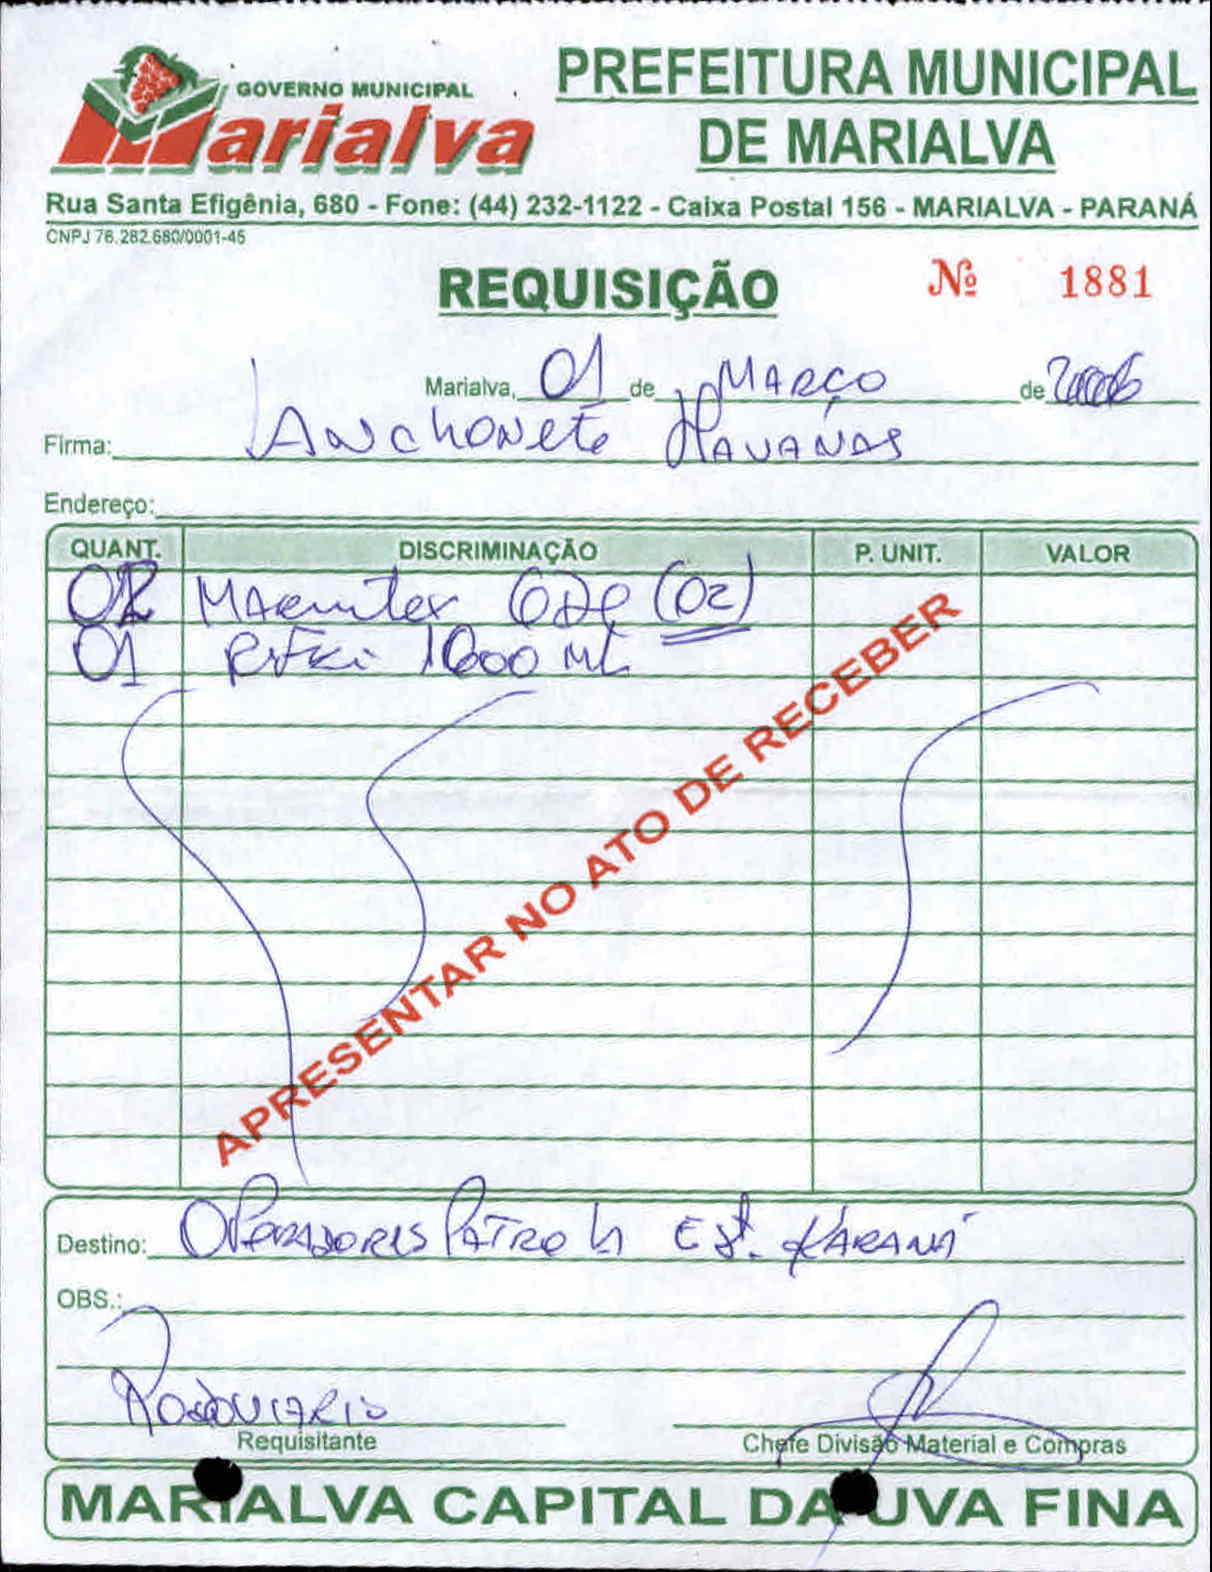 GOVERNO MUNICIPAL
Marialva
PREFEITURA MUNICIPAL
DE MARIALVA
Rua Santa Efigênia, 680 - Fone: (44) 232-1122 - Caixa Postal 156 - MARIALVA - PARANÁ
CNPJ 76.282.680/0001-45
REQUISIÇÃO
Nº 1881
Marialva, 01 de MARÇO de 2006
Firma: LANchONete HAVANAS
Endereço:
QUANT. DISCRIMINAÇÃO P. UNIT. VALOR
02 MARmitex (02)
01 Refri 1000 ML
APRESENTAR NO ATO DE RECEBER
Destino: OPERADORES PATROL Est. KARANÁ
OBS.:
RODOVIARIO
Requisitante
Chefe Divisão Material e Compras
MARIALVA CAPITAL DA UVA FINA